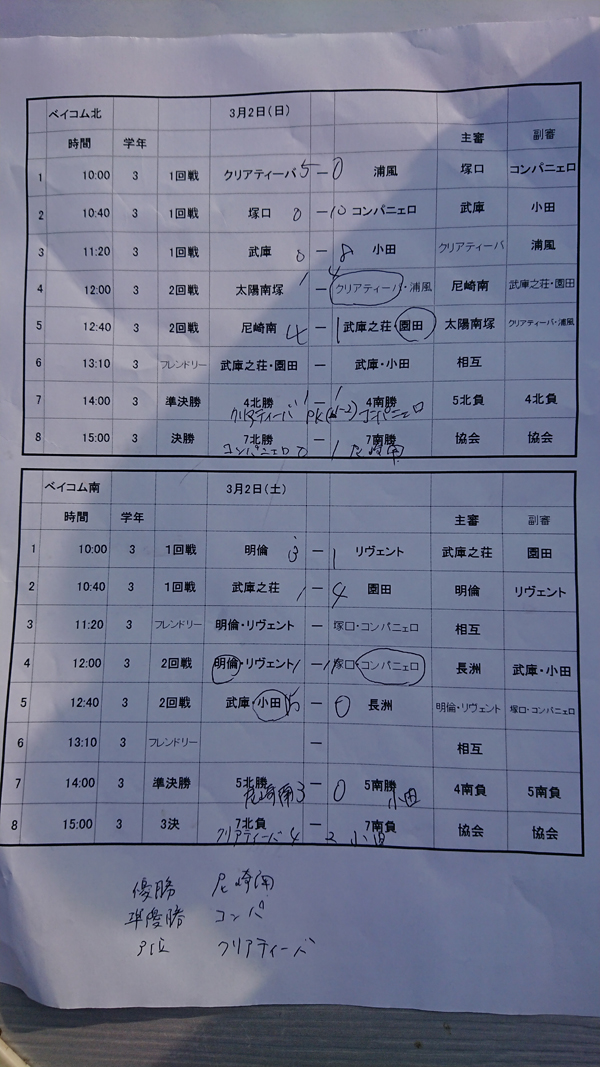 ベイコム北 3月2日(日)
時間 学年 主審 副審
1 10:00 3 1回戦 クリアティーバ 5 - 0 浦風 塚口 コンパニェロ
2 10:40 3 1回戦 塚口 0 - 10 コンパニェロ 武庫 小田
3 11:20 3 1回戦 武庫 0 - 8 小田 クリアティーバ 浦風
4 12:00 3 2回戦 太陽南塚 1 - 4 クリアティーバ・浦風 尼崎南 武庫之荘・園田
5 12:40 3 2回戦 尼崎南 4 - 1 武庫之荘・園田 太陽南塚 クリアティーバ・浦風
6 13:10 3 フレンドリー 武庫之荘・園田 - 武庫・小田 相互
7 14:00 3 準決勝 4北勝 1 - 1 4南勝 5北負 4北負
クリアティーバ PK コンパニェロ
8 15:00 3 決勝 7北勝 - 7南勝 協会 協会
コンパニェロ 0 1 尼崎南
ベイコム南 3月2日(土)
時間 学年 主審 副審
1 10:00 3 1回戦 明倫 3 - 1 リヴェント 武庫之荘 園田
2 10:40 3 1回戦 武庫之荘 1 - 4 園田 明倫 リヴェント
3 11:20 3 フレンドリー 明倫・リヴェント - 塚口・コンパニェロ 相互
4 12:00 3 2回戦 明倫・リヴェント 1 - 11 塚口・コンパニェロ 長洲 武庫・小田
5 12:40 3 2回戦 武庫・小田 5 - 0 長洲 明倫・リヴェント 塚口・コンパニェロ
6 13:10 3 フレンドリー - 相互
7 14:00 3 準決勝 5北勝 - 5南勝 4南負 5南負
尼崎南 3 0 小田
8 15:00 3 3決 7北負 - 7南負 協会 協会
クリアティーバ 4 2 小田
優勝 尼崎南
準優勝 コンパ
3位 クリアティーバ